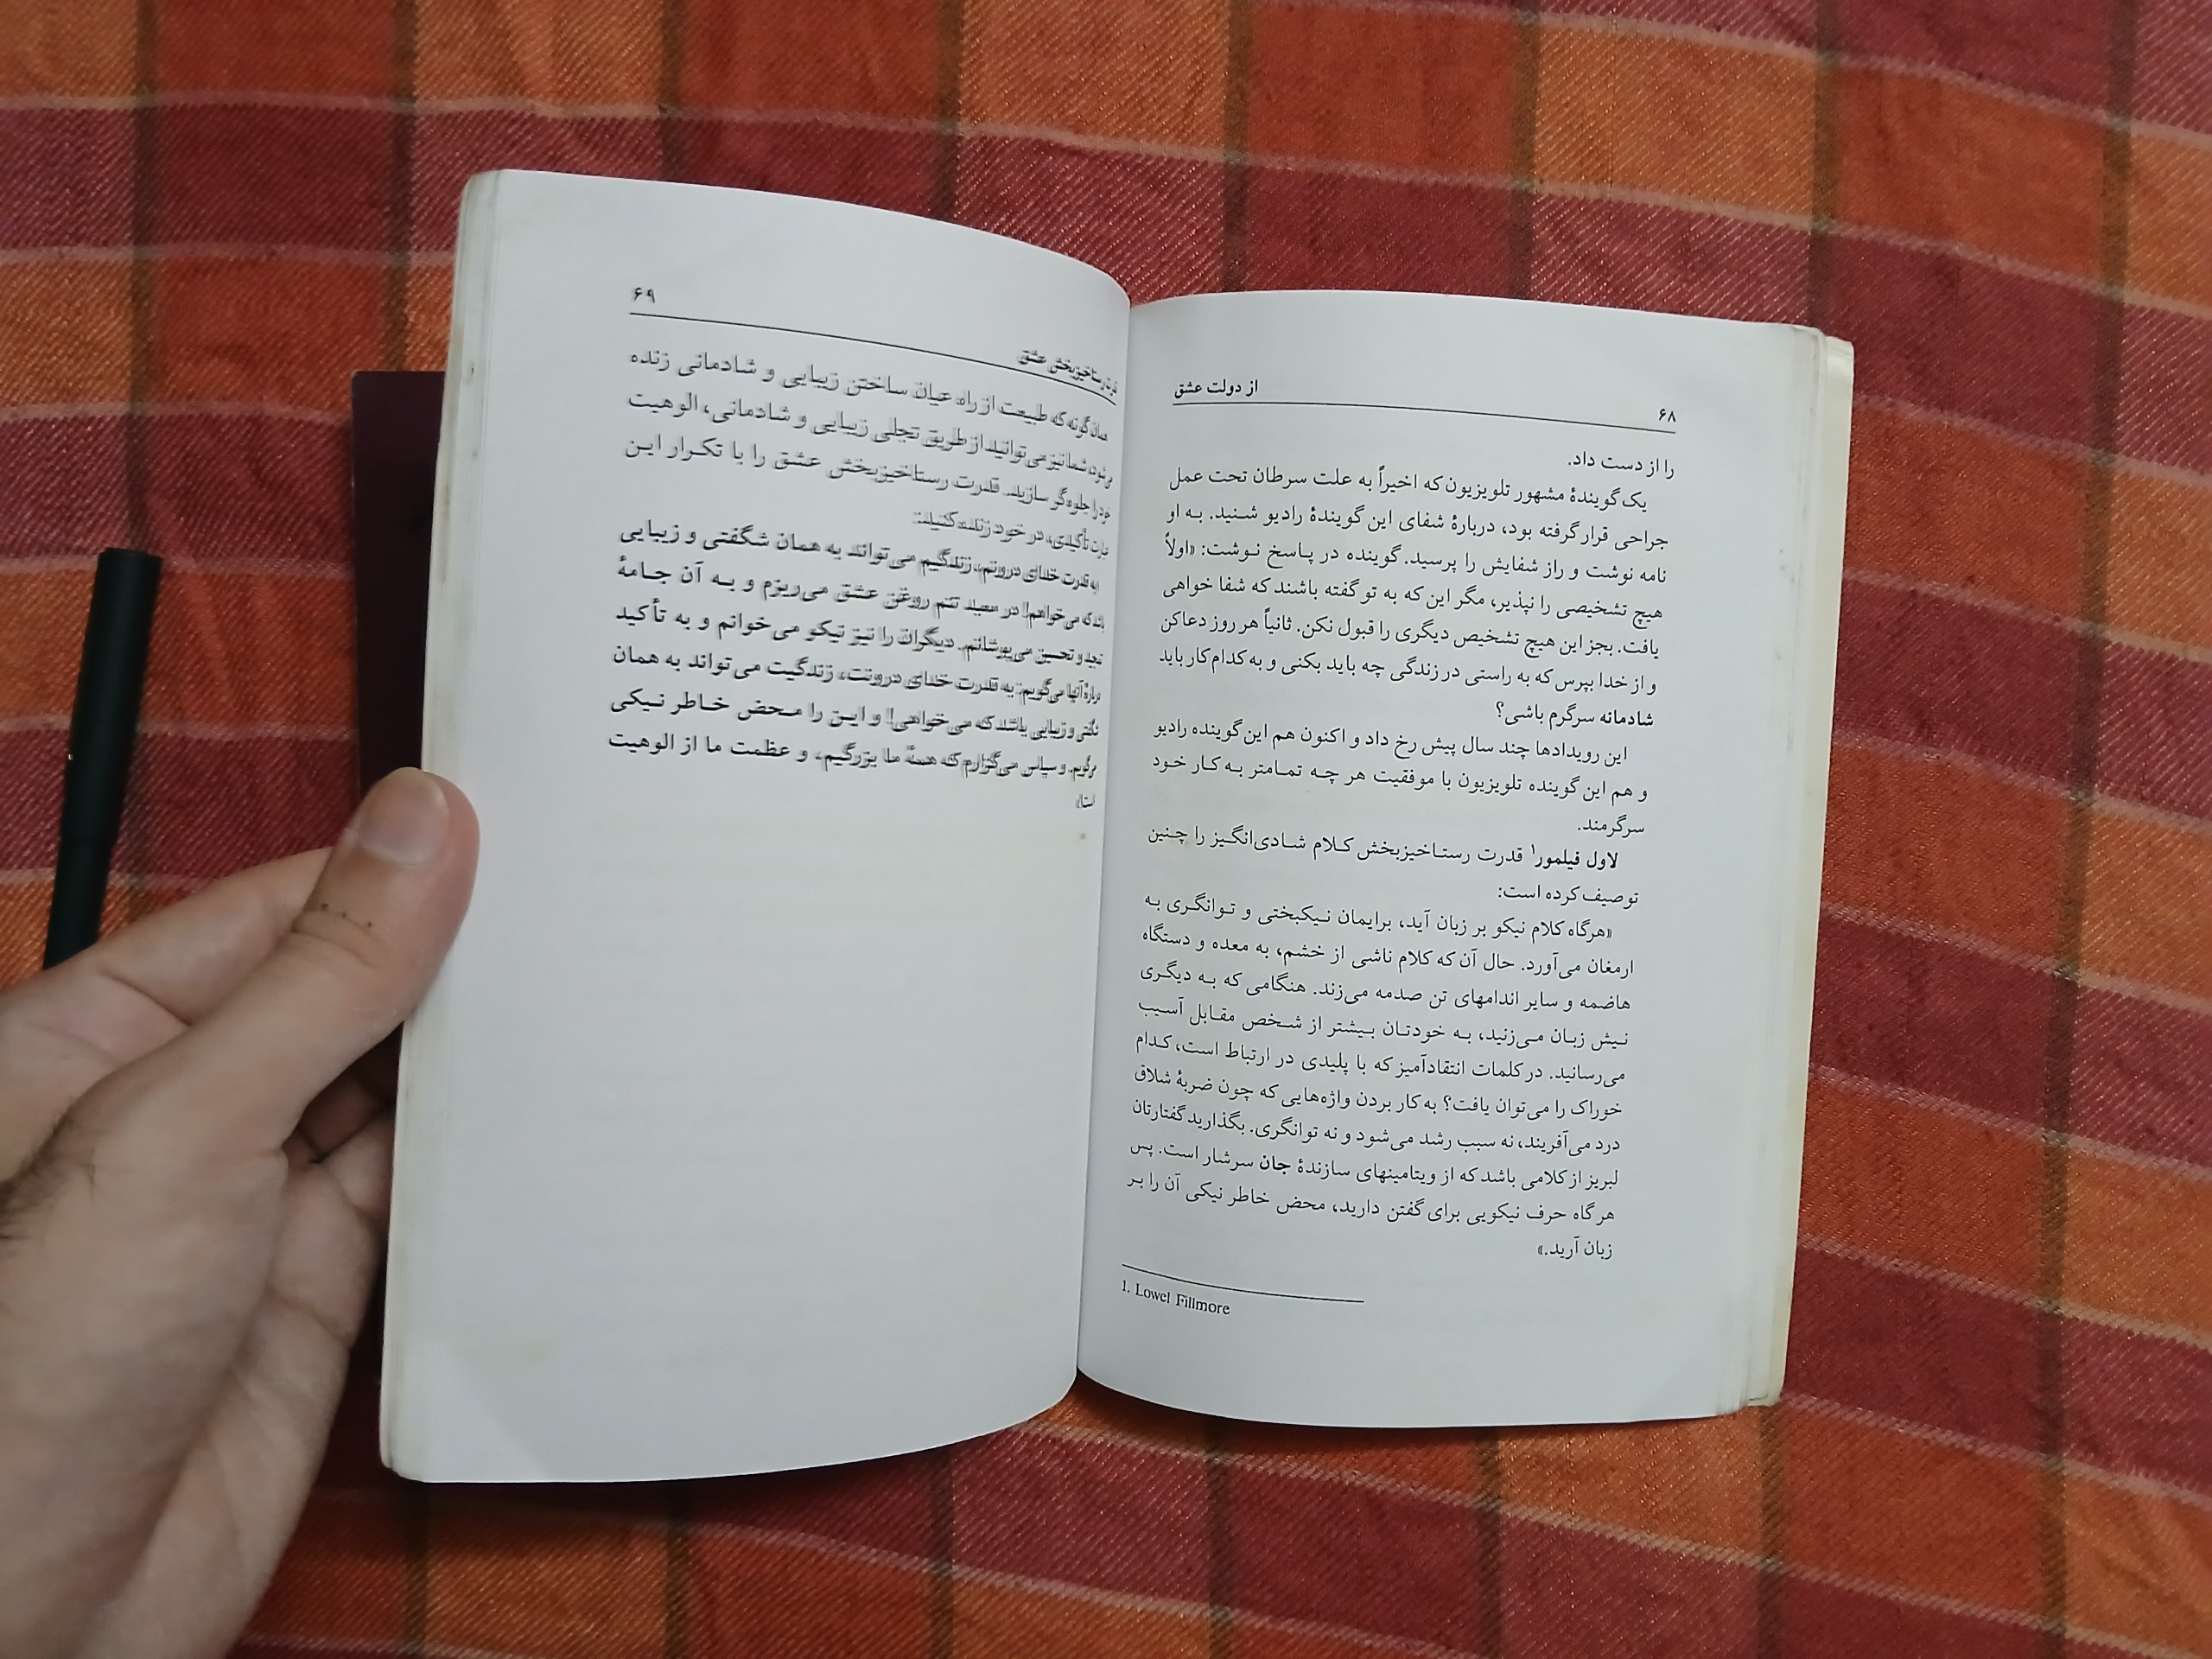 ۶۸
از دولت عشق
را از دست داد.
یک گویندهٔ مشهور تلویزیون که اخیراً به علت سرطان تحت عمل
جراحی قرار گرفته بود، دربارهٔ شفای این گویندهٔ رادیو شنید. به او
نامه نوشت و راز شفایش را پرسید. گوینده در پاسخ نوشت: «اولاً
هیچ تشخیصی را نپذیر، مگر این که به تو گفته باشند که شفا خواهی
یافت. بجز این هیچ تشخیص دیگری را قبول نکن. ثانیاً هر روز دعا کن
و از خدا بپرس که به راستی در زندگی چه باید بکنی و به کدام کار باید
شادمانه سرگرم باشی؟
این رویدادها چند سال پیش رخ داد و اکنون هم این گوینده رادیو
و هم این گوینده تلویزیون با موفقیت هر چه تمامتر به کار خود
سرگرمند.
لاول فیلمور۱ قدرت رستاخیزبخش کلام شادی‌انگیز را چنین
توصیف کرده است:
«هرگاه کلام نیکو بر زبان آید، برایمان نیکبختی و توانگری به
ارمغان می‌آورد. حال آن که کلام ناشی از خشم، به معده و دستگاه
هاضمه و سایر اندامهای تن صدمه می‌زند. هنگامی که به دیگری
نیش زبان می‌زنید، به خودتان بیشتر از شخص مقابل آسیب
می‌رسانید. در کلمات انتقادآمیز که با پلیدی در ارتباط است، کدام
خوراک را می‌توان یافت؟ به کار بردن واژه‌هایی که چون ضربهٔ شلاق
درد می‌آفریند، نه سبب رشد می‌شود و نه توانگری. بگذارید گفتارتان
لبریز از کلامی باشد که از ویتامینهای سازندهٔ جان سرشار است. پس
هر گاه حرف نیکویی برای گفتن دارید، محض خاطر نیکی آن را بر
زبان آرید.»
1. Lowel Fillmore
۶۹
قدرت رستاخیزبخش عشق
همان گونه که طبیعت از راه عیان ساختن زیبایی و شادمانی زنده
می‌شود، شما نیز می‌توانید از طریق تجلی زیبایی و شادمانی، الوهیت
خود را جلوه‌گر سازید. قدرت رستاخیزبخش عشق را با تکرار این
عبارت تأکیدی، در خود زنده کنید:
«به قدرت خدای درونم، زندگیم می‌تواند به همان شگفتی و زیبایی
باشد که می‌خواهم! در معبد تنم روغن عشق می‌ریزم و به آن جامهٔ
تمجید و تحسین می‌پوشانم. دیگران را نیز نیکو می‌خوانم و به تأکید
دربارهٔ آنها می‌گویم: به قدرت خدای درونت، زندگیت می‌تواند به همان
شگفتی و زیبایی باشد که می‌خواهی! و این را محض خاطر نیکی
می‌گویم. و سپاس می‌گزارم که همهٔ ما بزرگیم، و عظمت ما از الوهیت
است!»